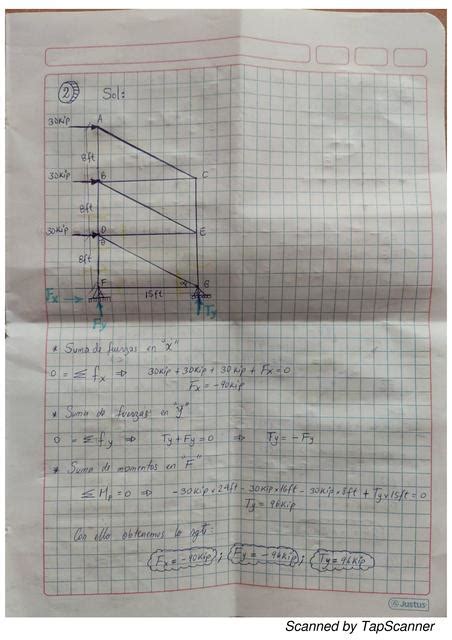 2 Sol:
30Kip A
8ft
30Kip B C
8ft
30Kip D E
θ
8ft
F α G
Fx 15ft
Fy Ty
* Suma de fuerzas en "x"
0 = Σ fx ⇒ 30Kip + 30Kip + 30Kip + Fx = 0
Fx = -90Kip
* Suma de fuerzas en "y"
0 = Σ fy ⇒ Ty + Fy = 0 ⇒ Ty = - Fy
* Suma de momentos en "F"
Σ MF = 0 ⇒ -30Kip x 24ft - 30Kip x 16ft - 30Kip x 8ft + Ty x 15ft = 0
Ty = 96Kip
Con ello obtenemos lo sgte:
Fx = -90Kip ; Fy = -96Kip ; Ty = 96Kip
Justus
Scanned by TapScanner